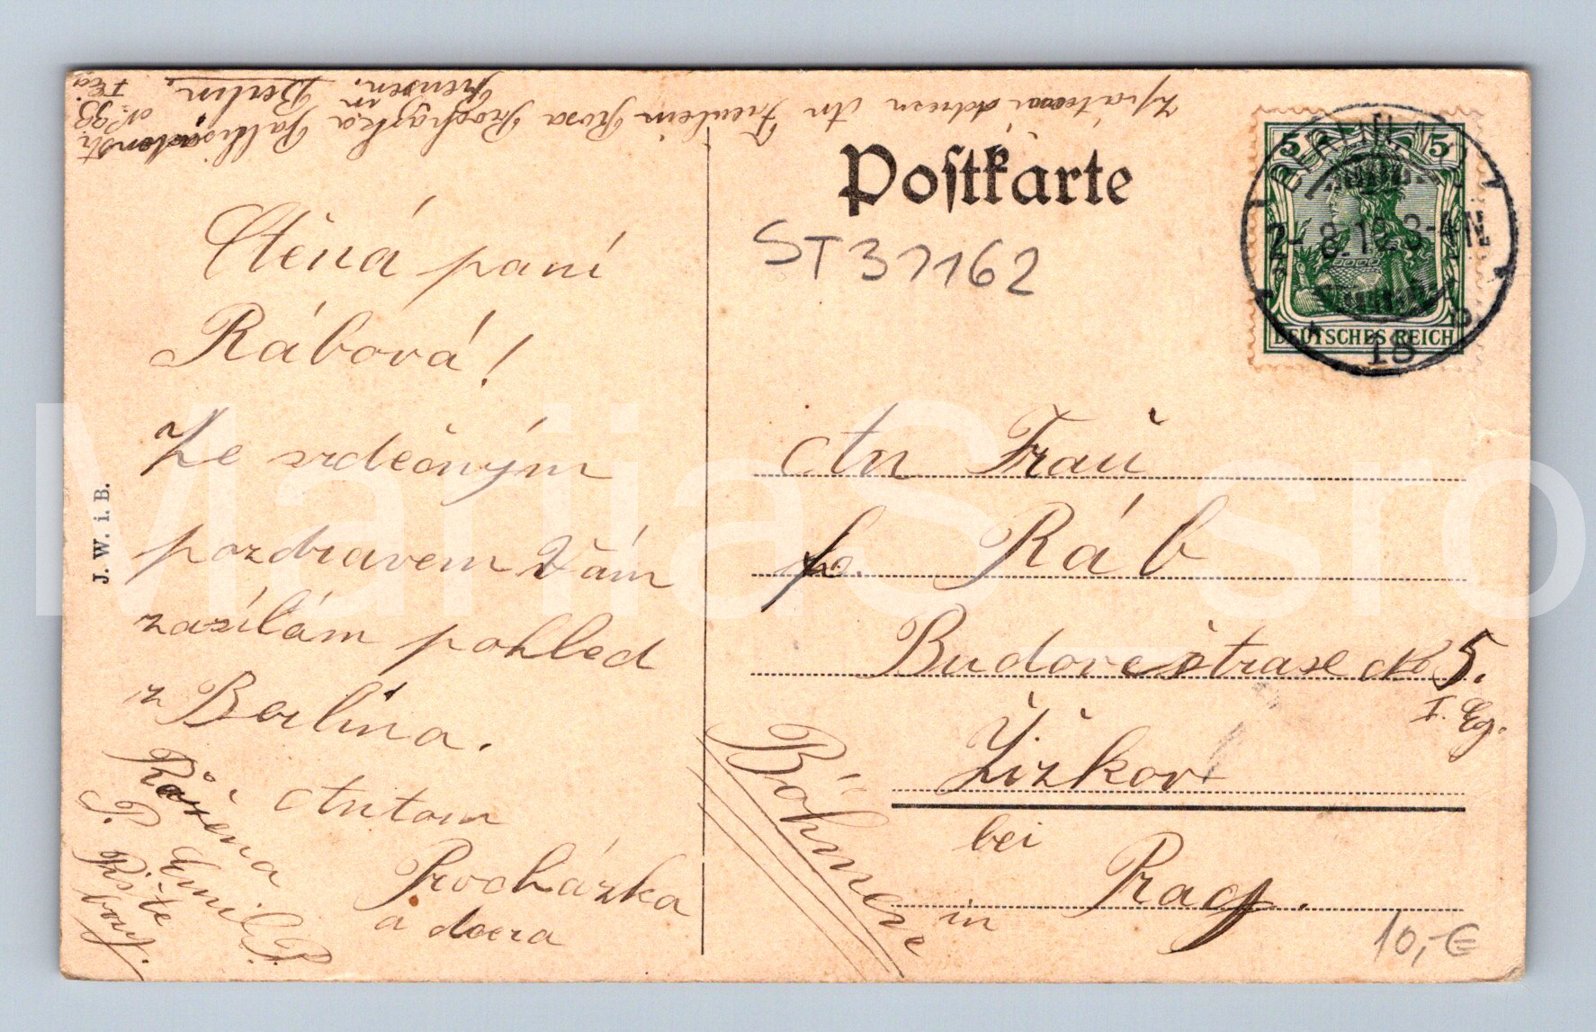 Zpáteční adresu An Fräulein Rosa Prochaska Pallisadenstr.
N. 99.
in
Berlin.
Postkarte
ST37162
5 5
BERLIN
8.12.3-4N
18
DEUTSCHES REICH
Ctěná paní
Rábová!
Ze srdečným
pozdravem Vám
zasílám pohled
z Berlína.
Antonín
Procházka
a dcera
Růžena
Emil P.
Pište
J. W. i. B.
An Fraŭ
Ráb
Budovcštrase No 5.
I. Eg.
Žižkov
bei
Prag.
in
Böhmen
10,-€
MarijaS_sro